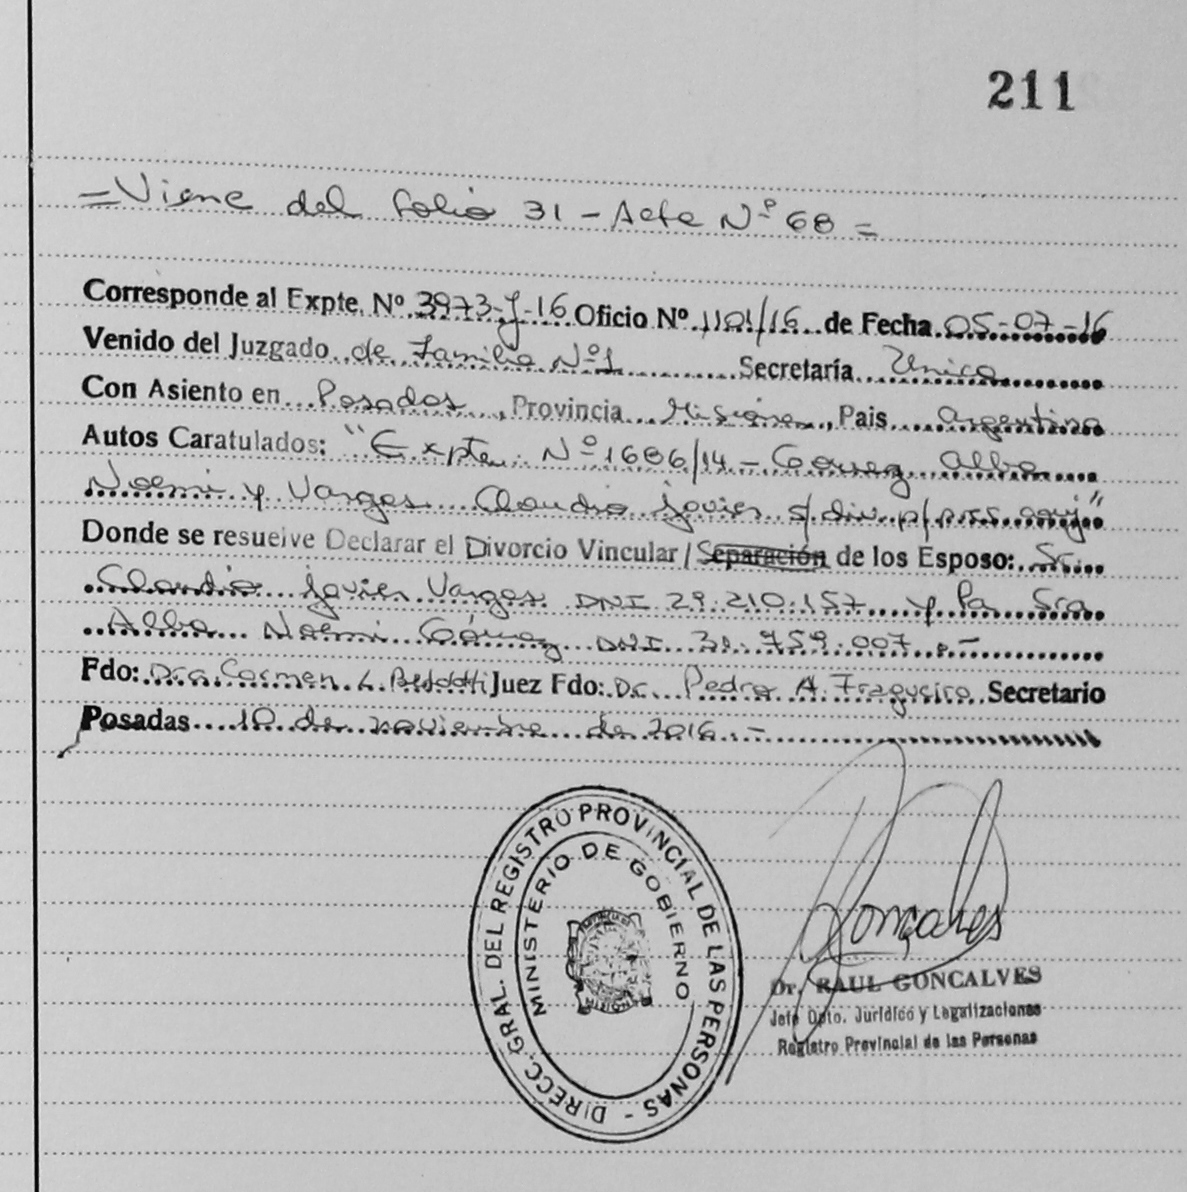 211
=Viene del folio 31 - Acta Nº 68 =
Corresponde al Expte. Nº 3973-J-16 Oficio Nº 1101/16 de Fecha 05-07-16
Venido del Juzgado de Familia Nº1 Secretaría Unica
Con Asiento en Posadas, Provincia Misiones, Pais Argentina
Autos Caratulados: "Expte. Nº 1686/14 - Gómez Alba
Noemi y Vargas Claudio Javier s/div. p/pres. conj."
Donde se resuelve Declarar el Divorcio Vincular / Separación de los Esposo: Sr.
Claudio Javier Vargas DNI 29.210.157 y la Sra.
Alba Noemi Gómez DNI 31.759.007.-
Fdo: Dra. Carmen L. Juez Fdo: Dr. Pedro A. Fragueiro Secretario
Posadas 10 de noviembre de 2016.-
DIRECC. GRAL. DEL REGISTRO PROVINCIAL DE LAS PERSONAS -
MINISTERIO DE GOBIERNO
MISIONES
Goncalves
Dr. RAUL GONCALVES
Jefe Dpto. Jurídico y Legalizaciones
Registro Provincial de las Personas